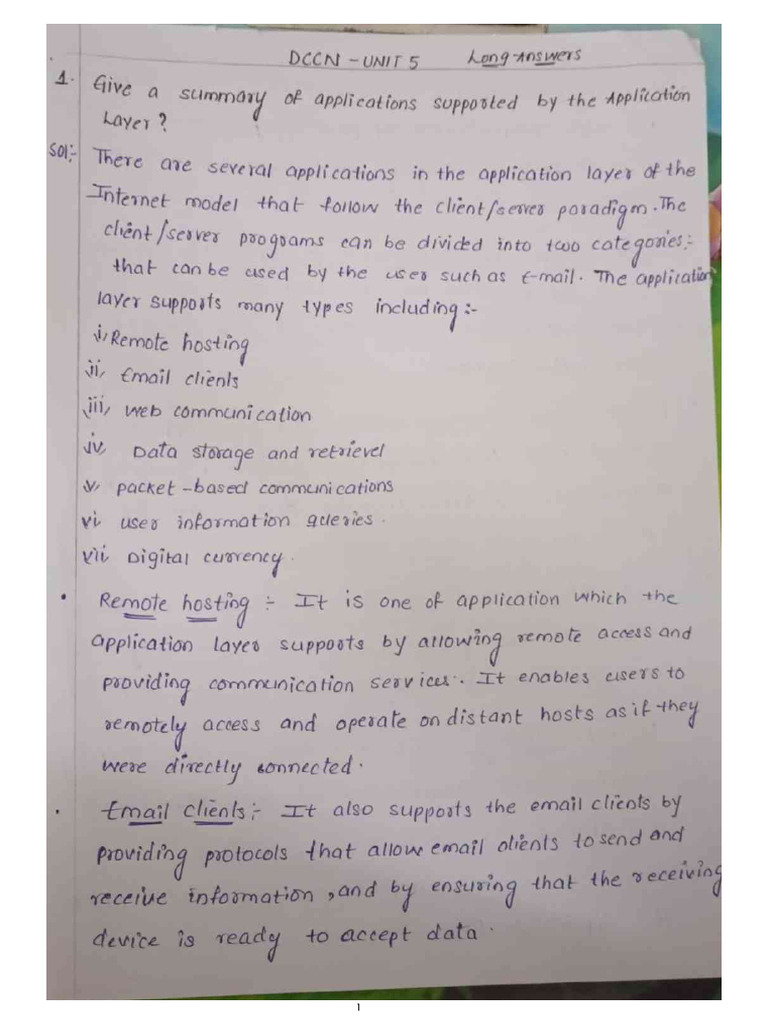 DCCN - UNIT 5 Long-Answers
1. Give a summary of applications supported by the Application
Layer?
Sol:- There are several applications in the application layer of the
Internet model that follow the client/server paradigm. The
client/server programs can be divided into two categories:-
that can be used by the user such as E-mail. The application
layer supports many types including:-
i, Remote hosting
ii, Email clients
iii, Web communication
iv, Data storage and retrievel
v, packet-based communications
vi user information queries.
vii Digital currency.
• Remote hosting :- It is one of application which the
application layer supports by allowing remote access and
providing communication services. It enables users to
remotely access and operate on distant hosts as if they
were directly connected.
• Email clients:- It also supports the email clients by
providing protocols that allow email clients to send and
receive information, and by ensuring that the receiving
device is ready to accept data.
1